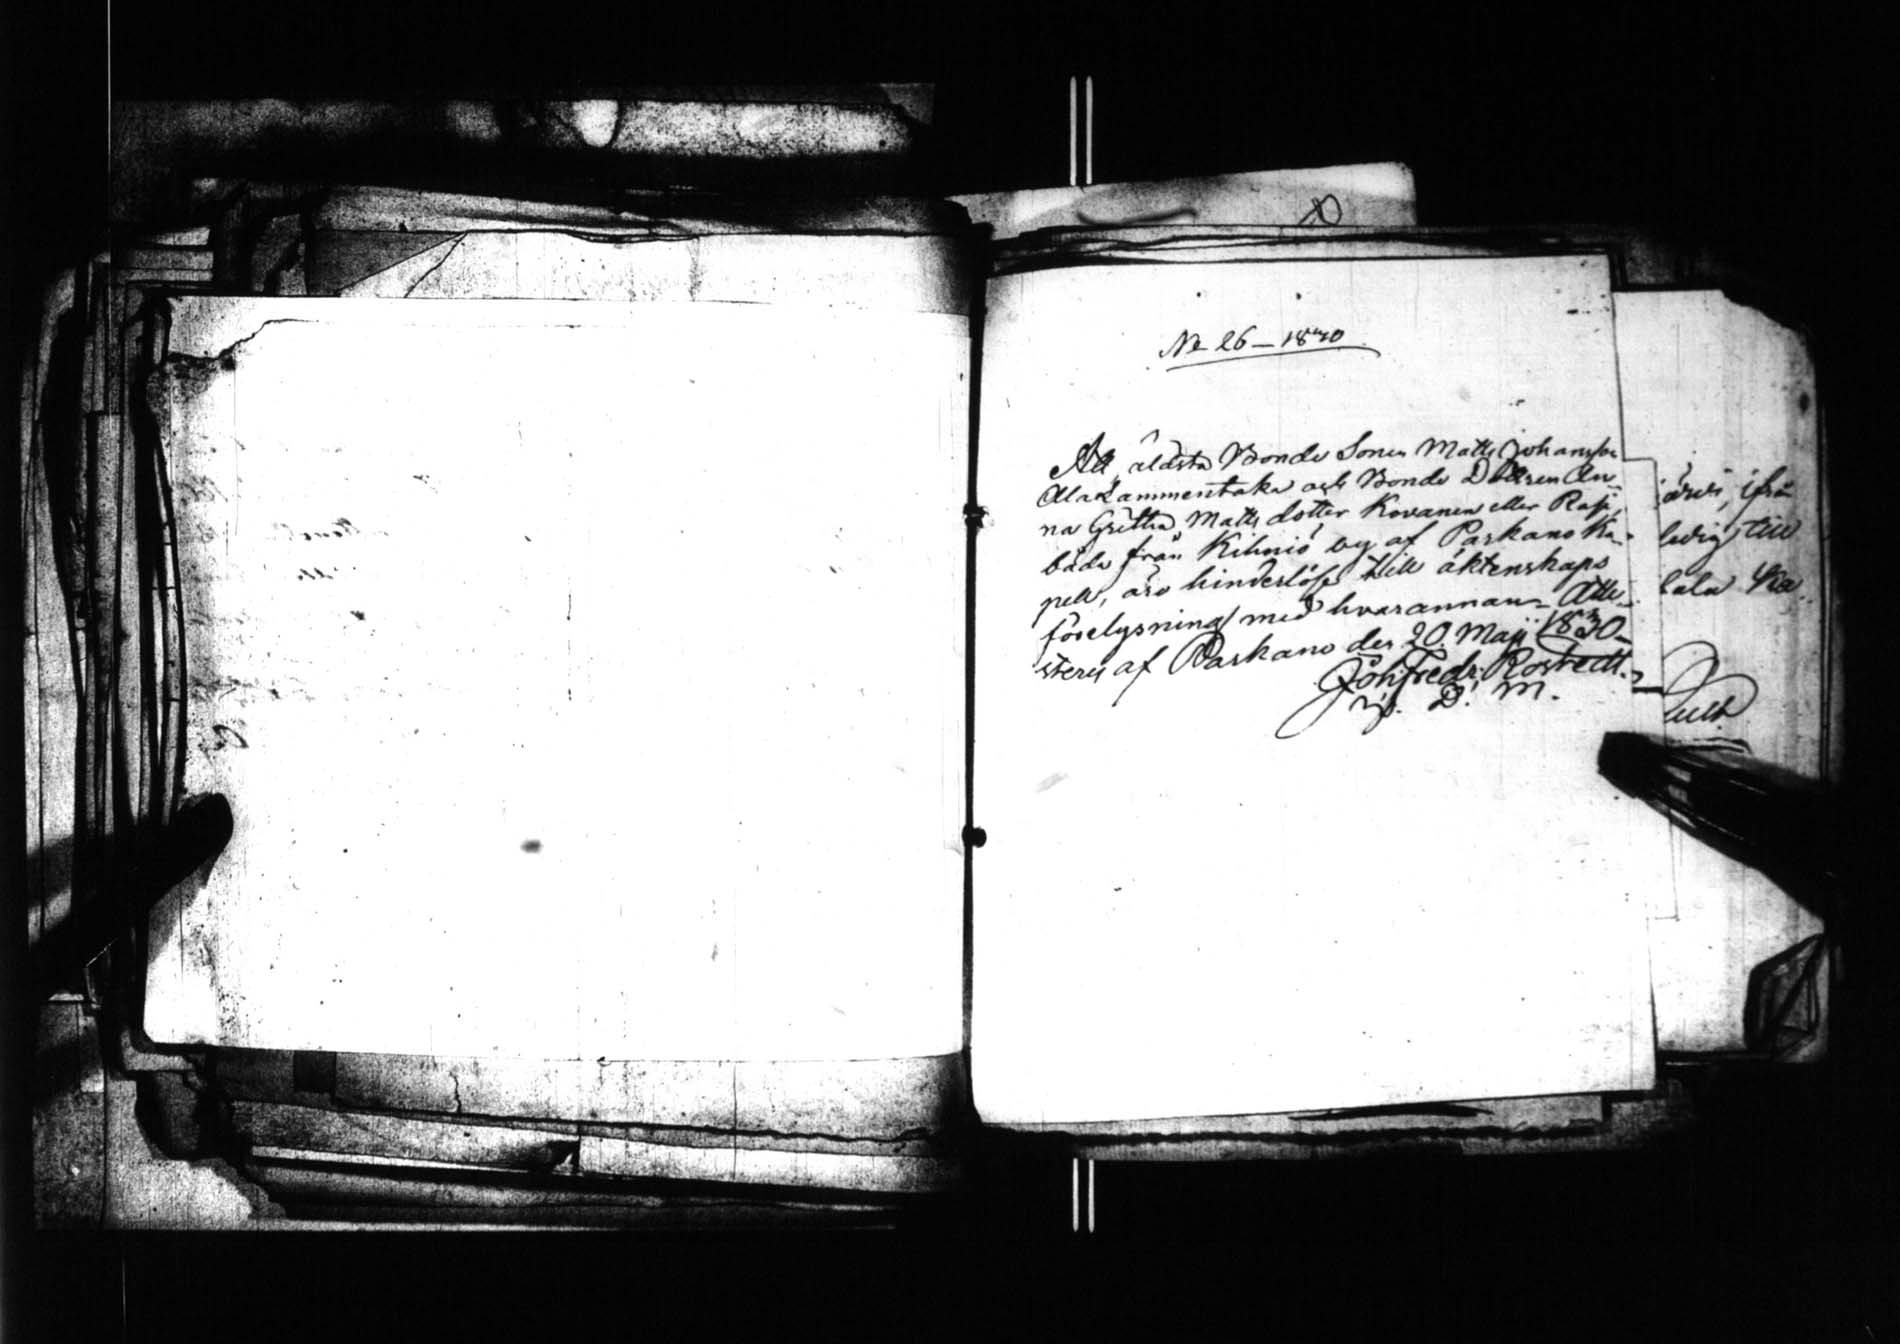 № 26 – 1830
At äldsta Bonde Sonen Matts Johansson
Ala Lammentaka och Bonde Dottren An-
na Gretha Matts dotter Kovanen eller Rasi,
båda från Kihniö by af Parkano Ka-
pell, äro hinderlöse till äktenskaps
förelysning med hvarannan – Atte-
steras af Parkano den 20 Maji 1830 –
Joh Fredr: Rostedt.
v. p. D. M.
ifrån
ledig till